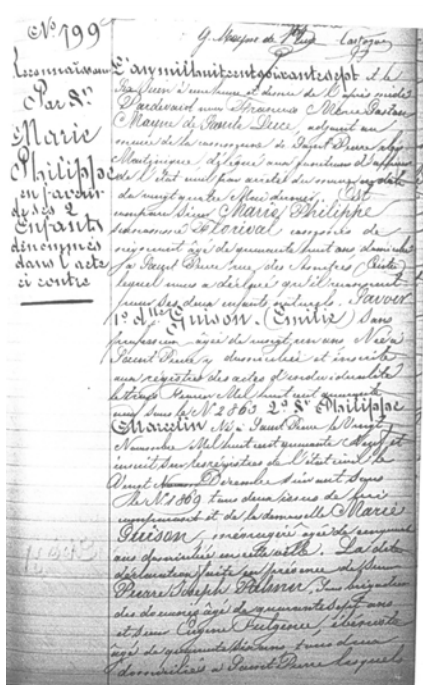 No 799
Reconnaissance
Par Sr
Marie
Philippe
en faveur
de ses 2
Enfants
dénommés
dans l'acte
ci contre
L'an mil huit cent soixante sept et le
Juin à une heure et demie de l'après midi
Pardevant nous François Marie Gustave
Mayer de Sainte Luce, adjoint au
maire de la commune de Saint Pierre
Martinique, délégué aux fonctions d'
de l'Etat civil par arrêté du maire en date
du vingt quatre Mai dernier. Est
comparu Sieur Marie Philippe
Florival
âgé de quarante huit ans domicilié
à Saint Pierre rue des
lequel nous a déclaré qu'il reconnait
pour ses deux enfants naturels. Savoir
1o dlle Guison. (Emilie) sans
profession âgée de vingt un ans Née à
Saint Pierre y domiciliée et inscrite
aux registres des actes d'individualité
Mil huit cent quarante
sous le No 2863 2o Sr Philippe
Marcelin Né à Saint Pierre le Vingt
Novembre Mil huit cent quarante Neuf et
inscrit sur les registres de l'état civil le
Vingt Décembre suivant sous
le No 1869 tous deux issus de lui
comparant et de la demoiselle Marie
Guison, ménagère âgée de cinquante
ans domiciliée en cette ville. La dite
déclaration faite en présence de Sieur
Pierre Joseph
des douanes âgé de quarante sept ans
et Sieur Eugène Fulgence, ébéniste
âgé de quarante six ans tous deux
domiciliés à Saint Pierre lesquels